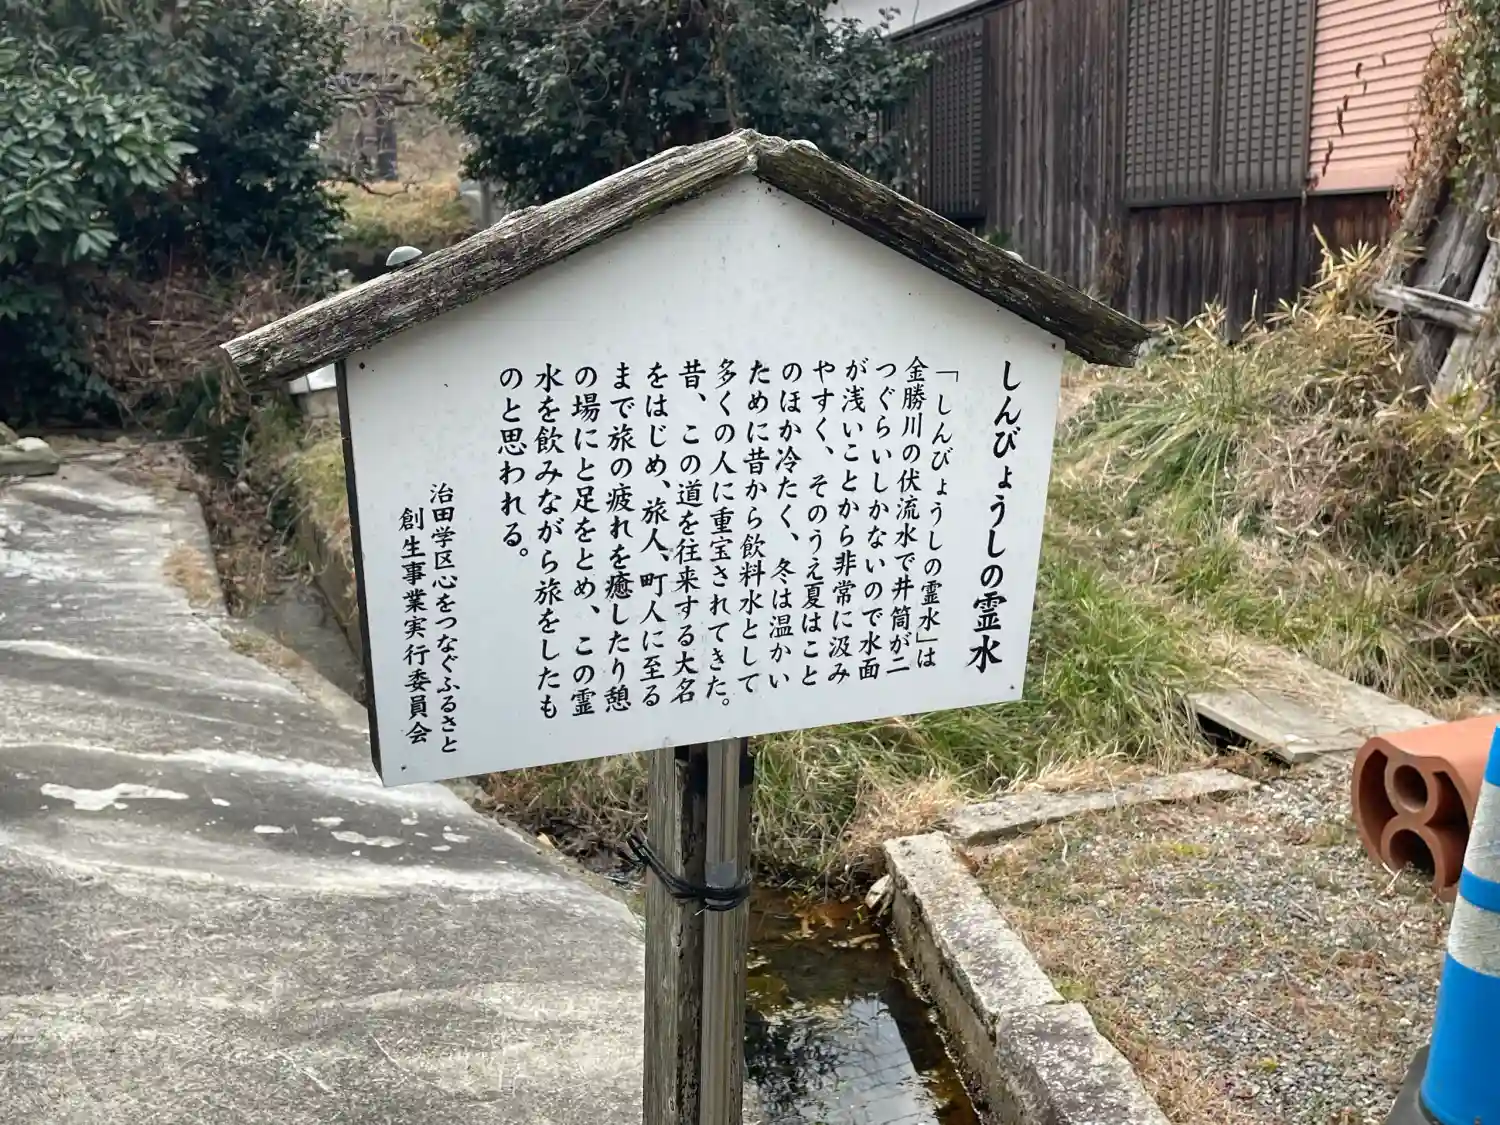 しんびょうしの霊水
「しんびょうしの霊水」は
金勝川の伏流水で井筒が二
つぐらいしかないので水面
が浅いことから非常に汲み
やすく、そのうえ夏はこと
のほか冷たく、冬は温かい
ために昔から飲料水として
多くの人に重宝されてきた。
昔、この道を往来する大名
をはじめ、旅人、町人に至る
まで旅の疲れを癒したり憩
の場にと足をとめ、この霊
水を飲みながら旅をしたも
のと思われる。
治田学区心をつなぐふるさと
創生事業実行委員会